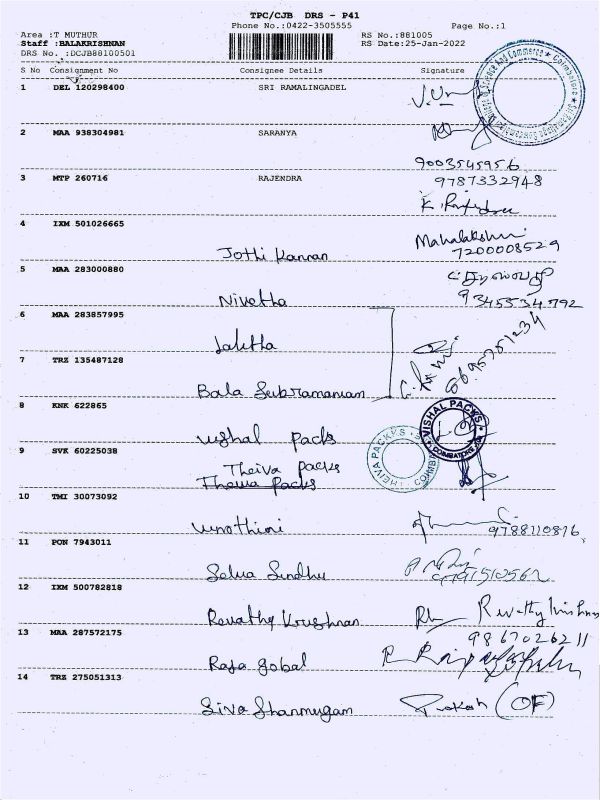 TPC/CJB DRS - P41
Phone No.:0422-3505555 Page No.:1
Area :T MUTHUR RS No.:881005
Staff :BALAKRISHNAN RS Date:25-Jan-2022
DRS No. :DCJB88100501
S No Consignment No Consignee Details Signature
1 DEL 120298400 SRI RAMALINGADEL
2 MAA 938304981 SARANYA
9003545956
3 MTP 260716 RAJENDRA 9787332948
4 IXM 501026665
Jothi Kannan Mahalakshmi
7200008529
5 MAA 283000880
Nivetha 9345534792
6 MAA 283857995
Lalitha
7 TRZ 135487128
Bala Subramaniam
8 KNK 622865
Vishal Packs VISHAL PACKS
COIMBATORE
9 SVK 60225038
Theiva Packs THEIVA PACKS
Theiva Packs
10 TMI 30073092
Vinothini 9788110816
11 PON 7943011
Selva Sindhu
12 IXM 500782818
Revathy Krushnan
13 MAA 287572175 9867026211
Raja Gobal
14 TRZ 275051313
Siva Shanmugam Prakash (OF)